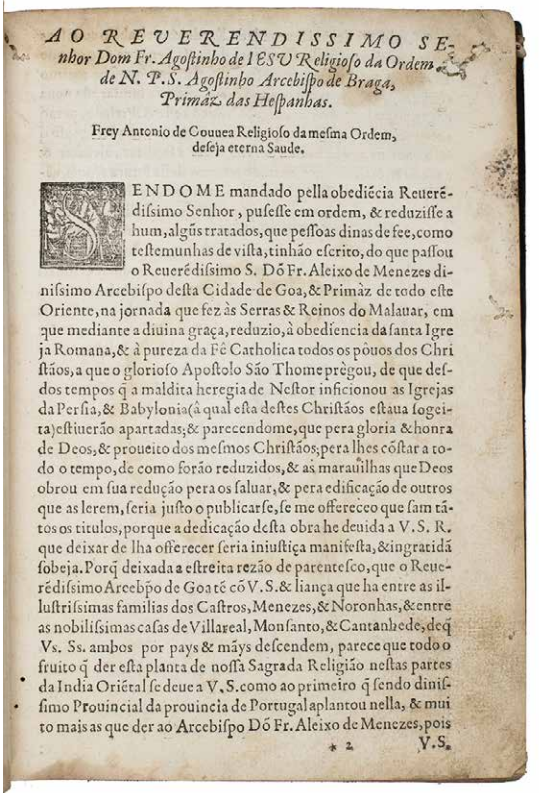 AO REVERENDISSIMO SE-
nhor Dom Fr. Agoſtinho de IESV Religioſo da Ordem
de N. P. S. Agoſtinho Arcebiſpo de Braga,
Primàz das Heſpanhas.
Frey Antonio de Gouuea Religioſo da meſma Ordem,
deſeja eterna Saude.
SENDOME mandado pella obediécia Reueré-
diſsimo Senhor, puſeſſe em ordem, & reduziſſe a
hum, algũs tratados, que peſſoas dinas de fee, como
teſtemunhas de viſta, tinhão eſcrito, do que paſſou
o Reuerédiſsimo S. Dõ Fr. Aleixo de Menezes di-
niſsimo Arcebiſpo deſta Cidade de Goa, & Primàz de todo eſte
Oriente, na jornada que fez às Serras & Reinos do Malauar, em
que mediante a diuina graça, reduzio, à obediencia da ſanta Igre
ja Romana, & à pureza da Fê Catholica todos os pôuos dos Chri
ſtãos, a que o glorioſo Apoſtolo São Thome prègou, de que deſ-
dos tempos q̃ a maldita heregia de Neſtor inficionou as Igrejas
da Perſia, & Babylonia (â qual eſta deſtes Chriſtãos eſtaua ſogei-
ta) eſtiuerão apartadas; & parecendome, que pera gloria & honra
de Deos, & proueito dos meſmos Chriſtãos; pera lhes cõſtar a to-
do o tempo, de como forão reduzidos, & as marauilhas que Deos
obrou em ſua redução pera os ſaluar, & pera edificação de outros
que as lerem, ſeria juſto o publicarſe, ſe me offereceo que ſam tã-
tos os titulos, porque a dedicação deſta obra he deuida a V. S. R.
que deixar de lha offerecer ſeria iniuſtiça manifeſta, & ingratidã
ſobeja. Porq̃ deixada a eſtreita rezão de parenteſco, que o Reue-
rédiſsimo Arcebp̃o de Goa té cõ V. S. & liança que ha entre as il-
luſtriſsimas familias dos Caſtros, Menezes, & Noronhas, & entre
as nobiliſsimas caſas de Villareal, Monſanto, & Cantanhede, deq̃
Vs. Ss. ambos por pays & mãys deſcendem, parece que todo o
fruito q̃ der eſta planta de noſſa Sagrada Religião neſtas partes
da India Oriétal ſe deue a V. S. como ao primeiro q̃ ſendo diniſ-
ſimo Provincial da prouincia de Portugal aplantou nella, & mui
to mais as que der ao Arcebiſpo Dõ Fr. Aleixo de Menezes, pois
* 2 V. S.